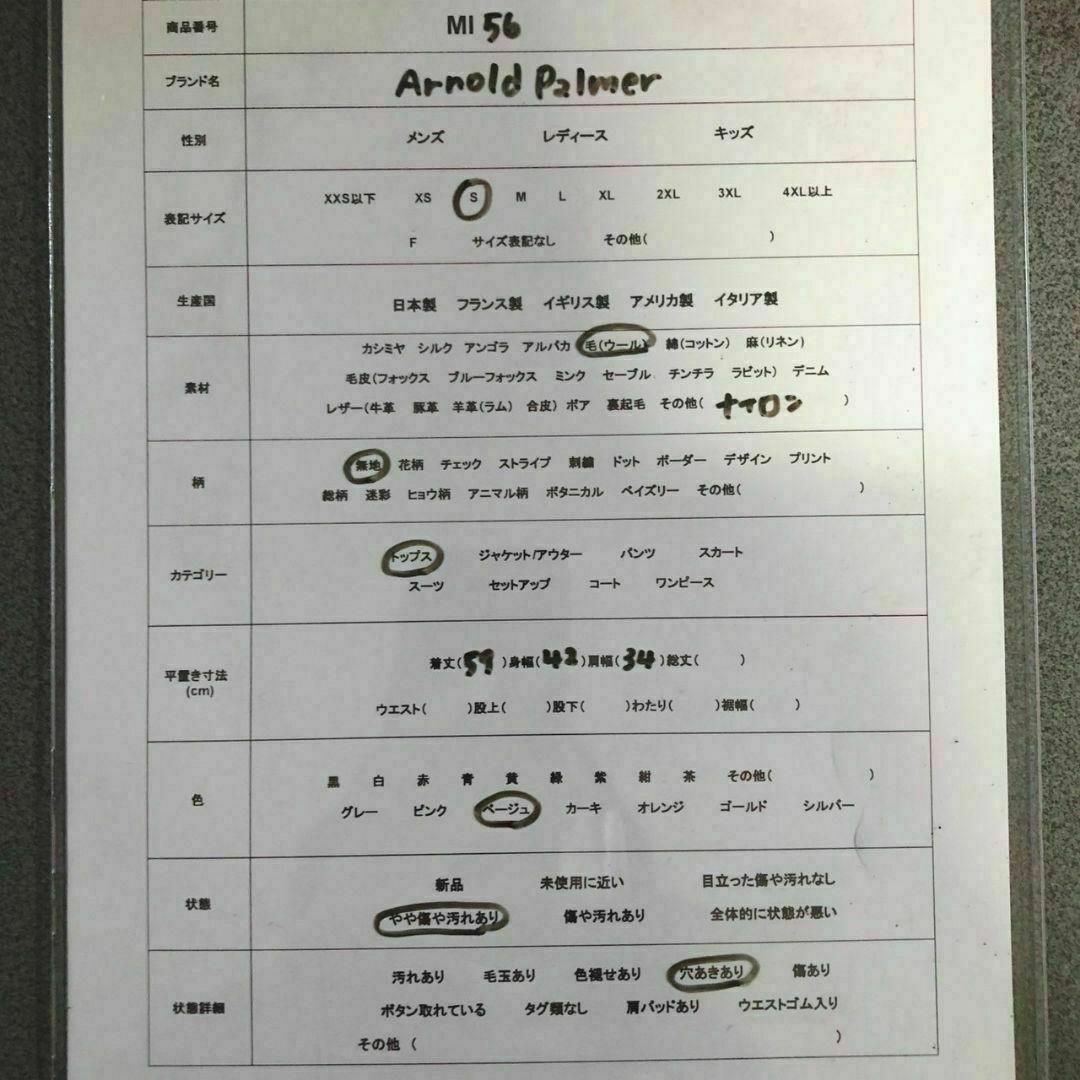 商品番号 MI 56
ブランド名 Arnold Palmer
性別 メンズ レディース キッズ
表記サイズ
XXS以下 XS S M L XL 2XL 3XL 4XL以上
F サイズ表記なし その他( )
生産国 日本製 フランス製 イギリス製 アメリカ製 イタリア製
素材
カシミヤ シルク アンゴラ アルパカ 毛(ウール) 綿(コットン) 麻(リネン)
毛皮(フォックス ブルーフォックス ミンク セーブル チンチラ ラビット) デニム
レザー(牛革 豚革 羊革(ラム) 合皮) ボア 裏起毛 その他( ナイロン )
柄
無地 花柄 チェック ストライプ 刺繍 ドット ボーダー デザイン プリント
総柄 迷彩 ヒョウ柄 アニマル柄 ボタニカル ペイズリー その他( )
カテゴリー
トップス ジャケット/アウター パンツ スカート
スーツ セットアップ コート ワンピース
平置き寸法
(cm)
着丈(59)身幅(42)肩幅(34)総丈( )
ウエスト( )股上( )股下( )わたり( )裾幅( )
色
黒 白 赤 青 黄 緑 紫 紺 茶 その他( )
グレー ピンク ベージュ カーキ オレンジ ゴールド シルバー
状態
新品 未使用に近い 目立った傷や汚れなし
やや傷や汚れあり 傷や汚れあり 全体的に状態が悪い
状態詳細
汚れあり 毛玉あり 色褪せあり 穴あきあり 傷あり
ボタン取れている タグ類なし 肩パッドあり ウエストゴム入り
その他 ( )